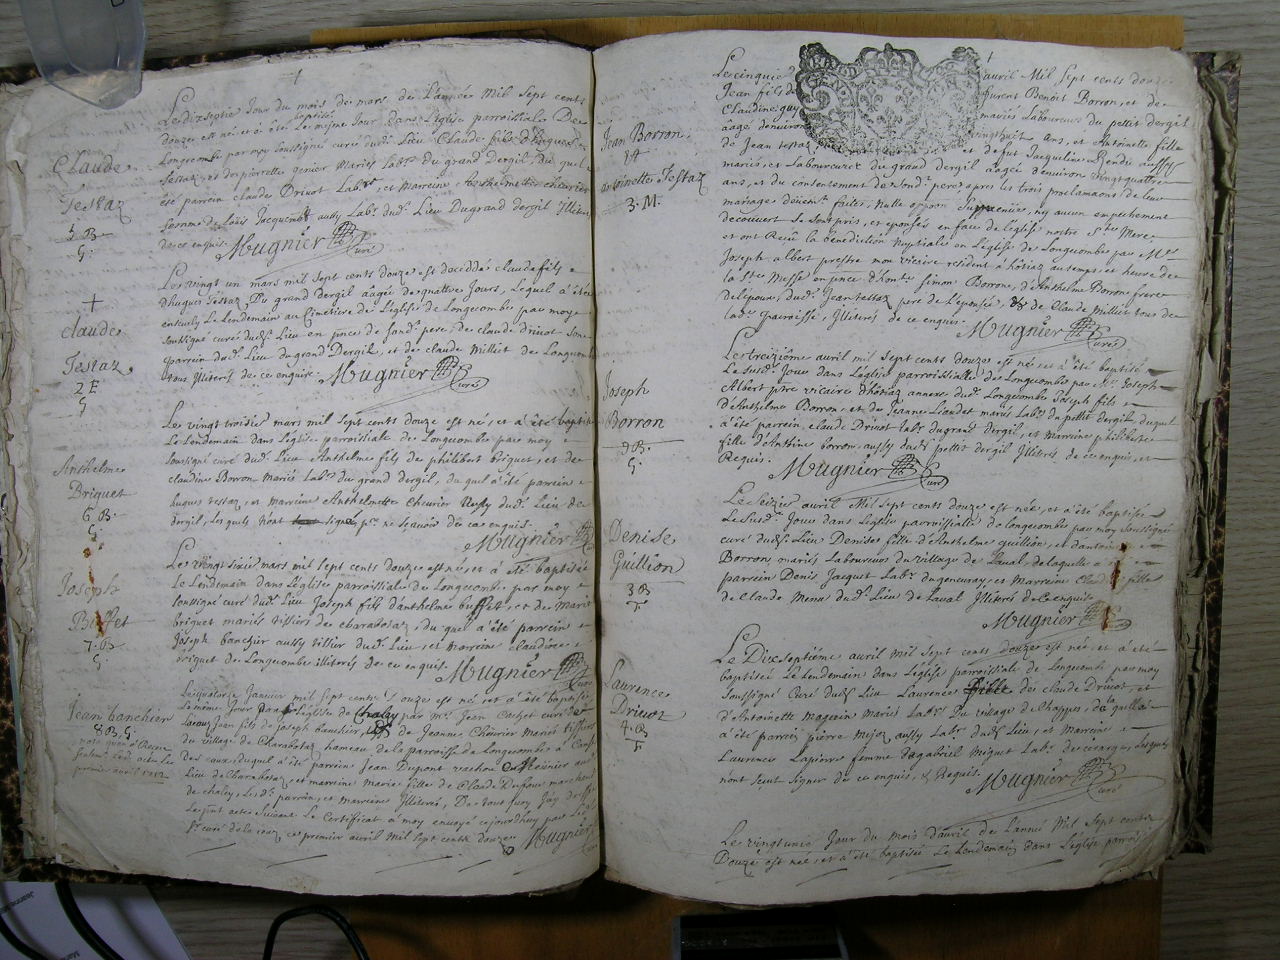 Le dixseptie Jour du mois de mars de L'année Mil Sept cents
baptisé
douze est né et a été le mesme Jour dans L'église parroissiale De
Longecombe par moy soussigné curé dud. Lieu Claude fils d'hugues
Testaz, et de pierrette genier Mariés Labrs du grand dergil, du quel
été parein claude Driuot Labr, et Mareine Anthelmette cheurier
femme de Louis Jacquemet aussy Labr dud. Lieu Dugrand dergil Illiteres
de ce enquis. Mugnier Curé
Claude
Testaz
5 B
G.
Les vingt un mars mil sept cents douze est deceddé claude fils
d'hugues Testaz, Du grand dergil aagée de quattre Jours, Lequel a été
enteuely Le lendemain au Cimetière de L'église de Longecombe par moy
soussigné curé dud. Lieu en pnce de sond. pere, de claude driuot son
parrein dud. Lieu du grand Dergil, et de claude Milliet de Longecombe
tous Illiterés de ce enquire. Mugnier curé
claude
Testaz
2 E
G
Le vingt troisie mars mil sept cents douze est né, et a été baptisé
Le Lendemain dans L'église parroissiale de Longecombe par moy
soussigné curé dud. Lieu Anthelme fils de philibert Briguet, et de
claudine Borron Mariés Labrs du grand dergil, du quel a été parrein
hugues testaz, et marreine Anthelmette Cheurier Aussy dud. Lieu de
dergil, Les quels n'ont signé pr ne scauoir de ce enquis.
Mugnier
Anthelme
Briguet
6 B.
G.
Les vingt sixie mars mil sept cents douze est né, et a été baptisé
Le Lendemain dans L'église parroissiale de Longecombe par moy
soussigné curé dud. Lieu Joseph fils d'anthelme buffet, et de Marie
briguet mariés tissiers de charabotaz, du quel a été parrein
Joseph banchier aussy tissier dud. Lieu, et mareine claudine
briguet de Longecombe illiterés de ce enquis. Mugnier
Joseph
Buffet
7. B
G
Le quatorze Janvier mil sept cents douze est né et a été baptisé
Le même Jour dans L'église de chaley par mr. Jean Cachet curé
Jean fils de Joseph banchier, et de Jeanne Cheurier Mariés tissiers
du village de Charabotaz hameau de la parroisse de Longecombe
des eaux, du quel a été parrein Jean Dupont
Lieu de Charabotaz, et marreine Marie fille de Claude Dufour marchand
de chaley, Le d. parrein, et marreine Illiterés, De tout fury
Le pnt acte suiuant Le Certificat a moy enuoyé cejourdhuy par Led.
Sr. curé ce premier auril Mil sept cents douze. Mugnier
Jean banchier
8 B. G.
premier auril 1712
Le cinquie auril Mil Sept cents douze
Jean fils de furent Benoit Borron, et de
Claudine guy mariés Laboureurs du petit dergil
aagé denuiron vingthuit ans, et Antoinette fille
de Jean testaz et defut Jacqueline Rendu aussy
mariés, et Laboureurs du grand dergil aagée denuiron vingtquattre
ans, et du consentement de sond. pere, apres les trois proclamaons de leur
mariage deüemt. faites, nulle opposon suruenüe, ny aucun empechement
decouuert se sont pris, et epousés en face de l'église nostre Ste Mere,
et ont Receu la bénédiction Nuptiale en L'église de Longecombe par Mre
Joseph albert prestre mon vicaire resident a hotiaz au temps, et heure de
la Ste Messe en pnce d'honte. Simon Borron, d'Anthelme Borron frere
de L'époux, dud. Jean testaz pere de L'épousée, & de Claude Milliet tous de
lad. parroisse, Illiterés de ce enquis. Mugnier curé
Jean Borron,
et
antoinette Testaz
3. M.
Les treizième auril mil sept cents douze est né et a été baptisé
Le susd. Jour dans L'église parroissialle de Longecombe par mr. Joseph
Albert ptre vicaire d'hotiaz annexe dud. Longecombe Joseph fils
d'Anthelme Borron, et de Jeanne Liaudet mariés Labrs du petit dergil, duquel
a été parrein, claude Driuot labr dugrand dergil, et marreine philiberte
fille d'Antoine borron, aussy dud. petit dergil Illiterés de ce enquis, et
Requis. Mugnier Curé
Joseph
Borron
9 B.
G.
Le seizie auril Mil Sept cents douze est née, et a été baptisée
Le susd. Jour dans L'église parroissiale de longecombe par moy soussigné
curé dud. Lieu Denise fille d'Anthelme guillion, et d'antoinette
Borron, mariés Laboureurs du village de Laual, de laquelle a été
parrein Denis Jacquet Labr dugeneuray, et Marreine Claudine fille
de Claude Menu dud. Lieu de Laual Illiterés de ce enquis.
Mugnier
Denise
Guillion
3 B
F.
Le Dix septième auril Mil sept cents douze est née, et a été
baptisée Le lendemain dans L'église parroissiale de Longecombe par moy
soussigné Curé dud. Lieu Laurence fille de claude Driuot, et
d'Antoinette Magnin Mariés Labrs Du village de Chappes, de laquelle
a été parrein pierre Mejoz aussy Labr dud. Lieu, et Marreine
Laurence Lapierre femme de gabriel Miguet Labr de
nont sceut signer de ce enquis, & Requis. Mugnier Curé
Laurence
Driuot
4. B
F
Le vingtunie Jour du mois d'auril de L'année Mil Sept cents
Douze est née, et a été baptisée Le Lendemain dans L'église parroiss